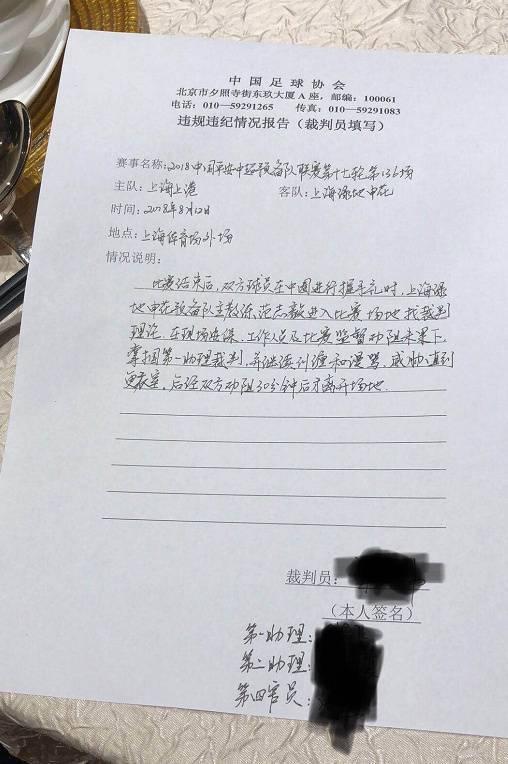 中国足球协会
北京市夕照寺街东玖大厦A座，邮编：100061
电话：010—59291265 传真：010—59291083
违规违纪情况报告（裁判员填写）
赛事名称：2018中国平安中超预备队联赛第十七轮第136场
主队：上海上港 客队：上海绿地申花
时间：2018年8月12日
地点：上海体育场外场
情况说明：
比赛结束后，双方球员在中圈进行握手礼时，上海绿
地申花预备队主教练范志毅进入比赛场地找裁判
理论，在现场安保、工作人员及比赛监督劝阻未果下，
掌掴第一助理裁判，并继续纠缠和谩骂，威胁直到
更衣室，后经双方劝阻30分钟后才离开场地．
裁判员：
（本人签名）
第一助理：
第二助理：
第四官员：